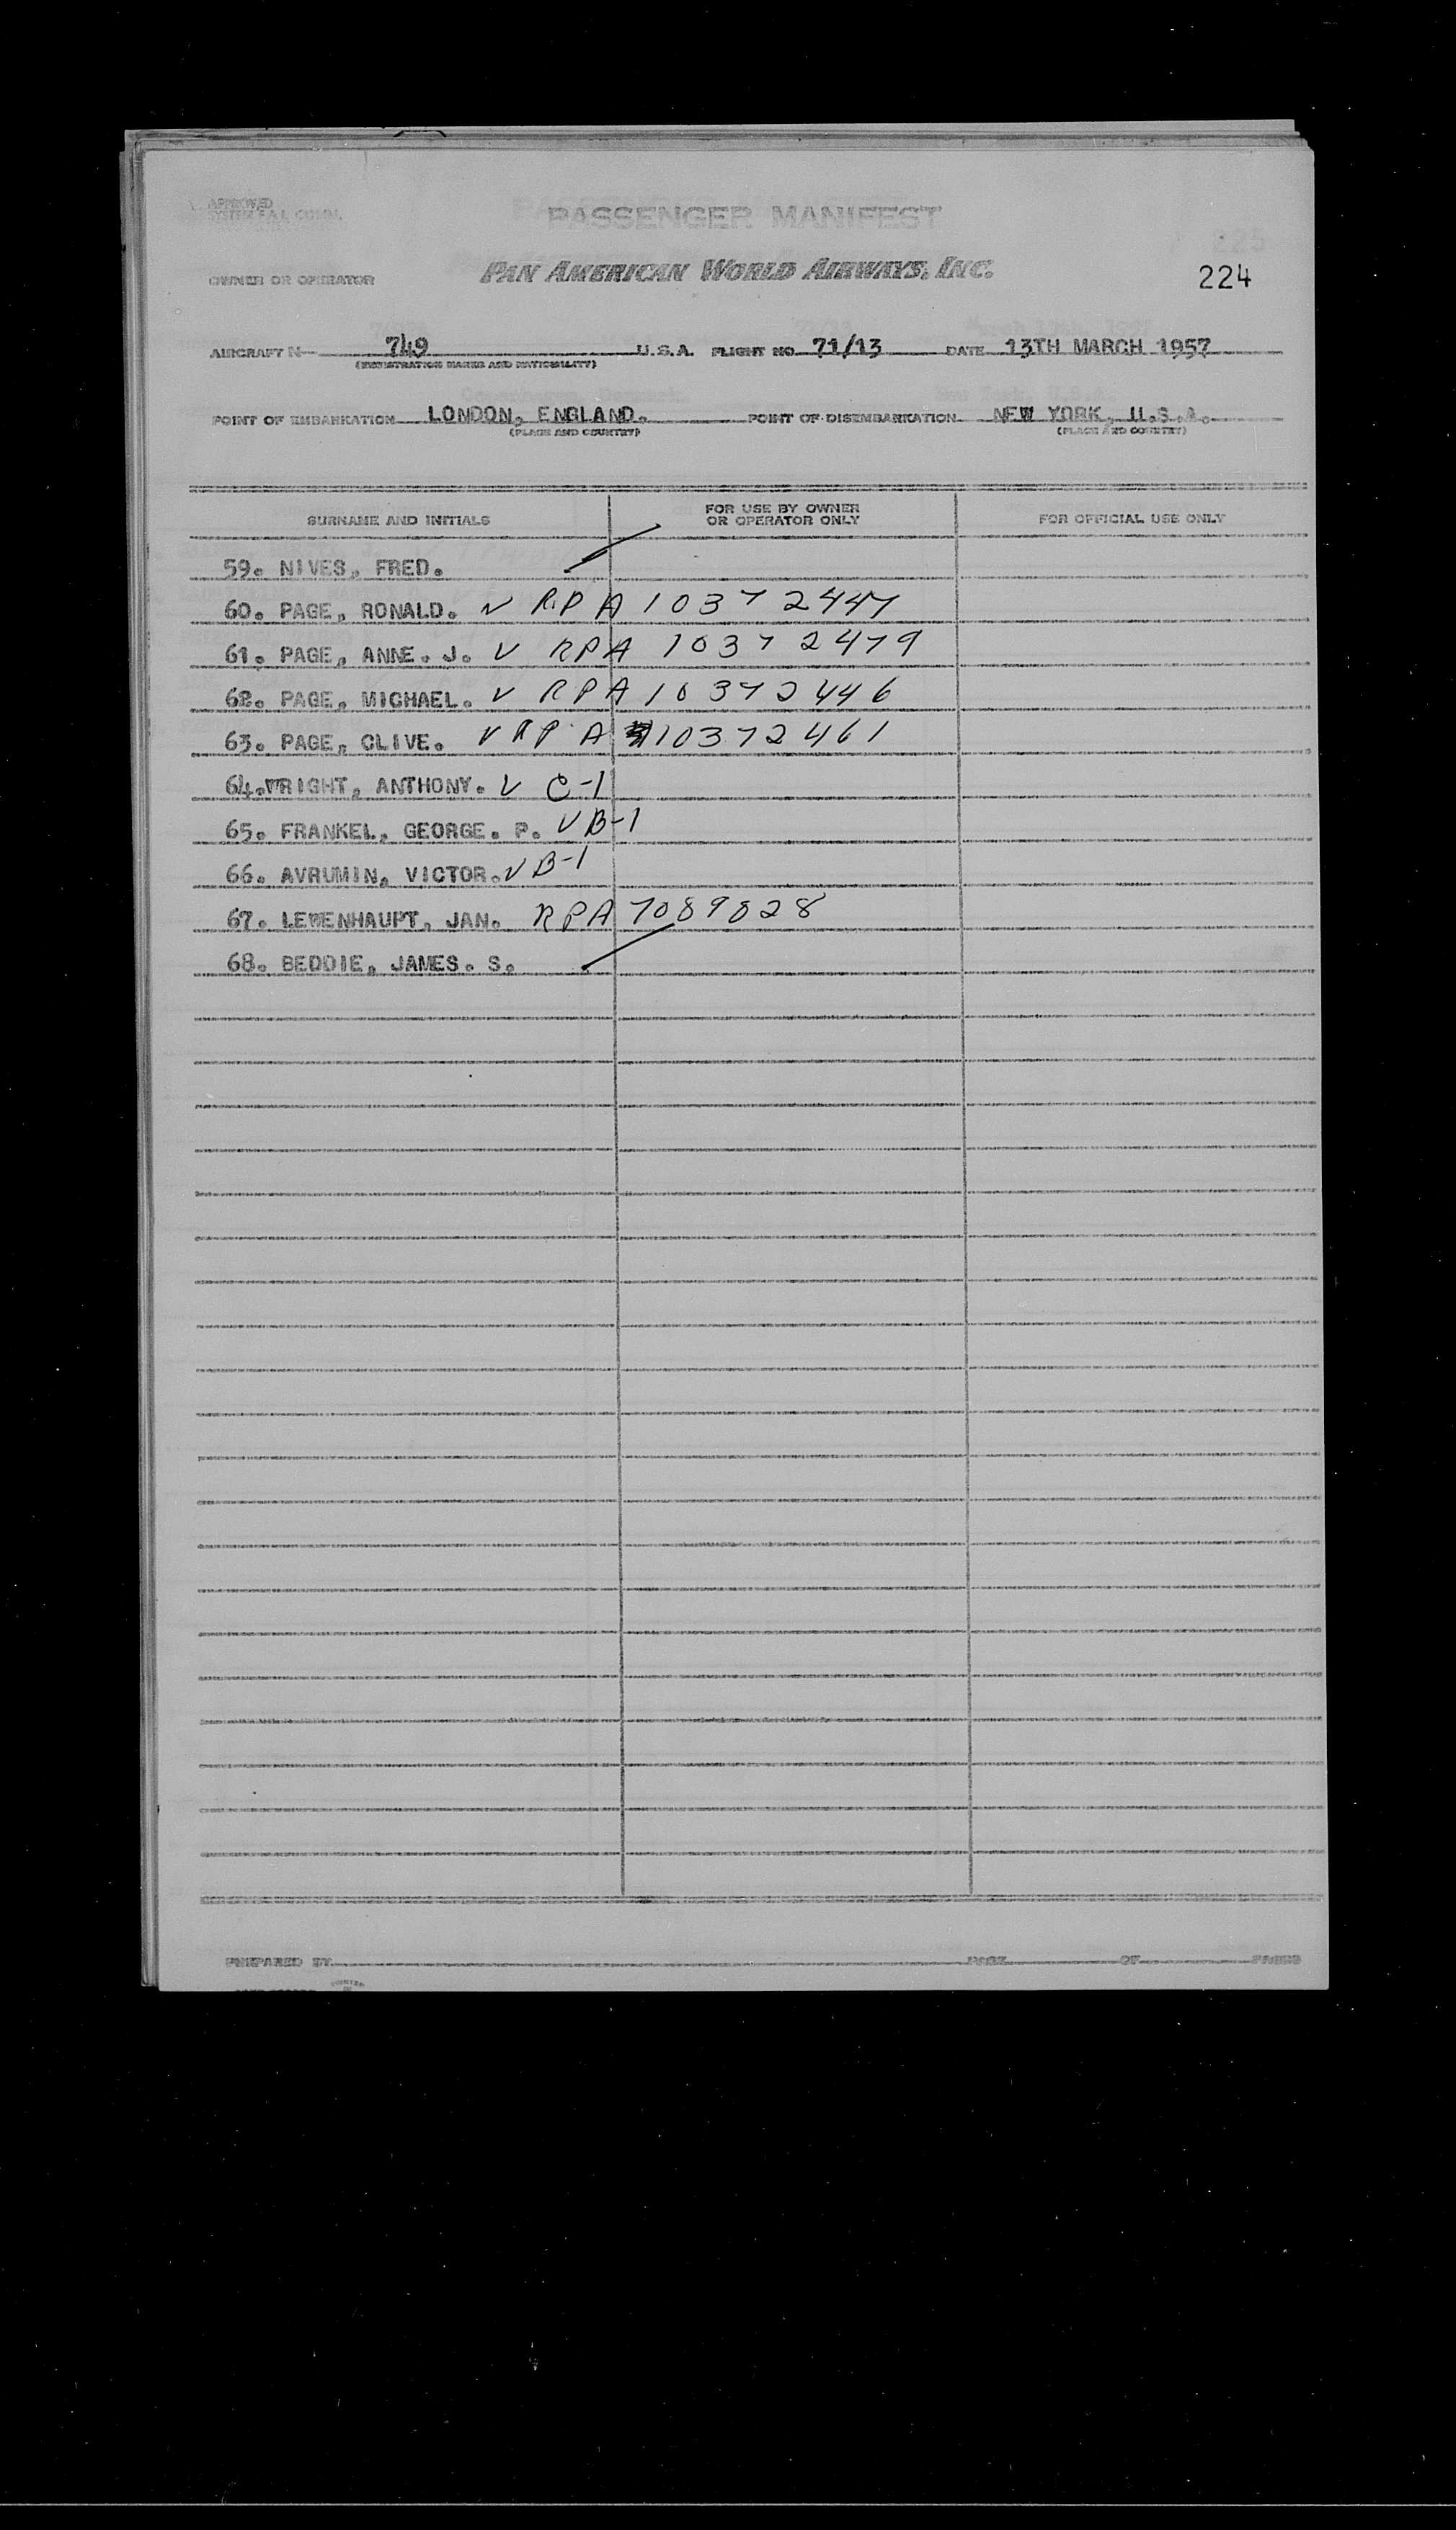 APPROVED
SYSTEM F.A.L. COMM.
PASSENGER MANIFEST
OWNER OR OPERATOR PAN AMERICAN WORLD AIRWAYS, INC. 224
AIRCRAFT N 749 U.S.A. FLIGHT NO. 71/13 DATE 13TH MARCH 1957
(REGISTRATION MARKS AND NATIONALITY)
POINT OF EMBARKATION LONDON, ENGLAND. POINT OF DISEMBARKATION NEW YORK, U.S.A.
(PLACE AND COUNTRY) (PLACE AND COUNTRY)
SURNAME AND INITIALS FOR USE BY OWNER OR OPERATOR ONLY FOR OFFICIAL USE ONLY
59. NIVES, FRED.
60. PAGE, RONALD. V RPA 10372447
61. PAGE, ANNE. J. V RPA 10372479
62. PAGE, MICHAEL. V RPA 10372446
63. PAGE, CLIVE. V RPA 10372461
64. WRIGHT, ANTHONY. V C-1
65. FRANKEL, GEORGE. P. V B-1
66. AVRUMIN, VICTOR. V B-1
67. LEWENHAUPT, JAN. RPA 7089828
68. BEDDIE, JAMES. S.
PREPARED BY PAGE OF PAGES
PRINTED